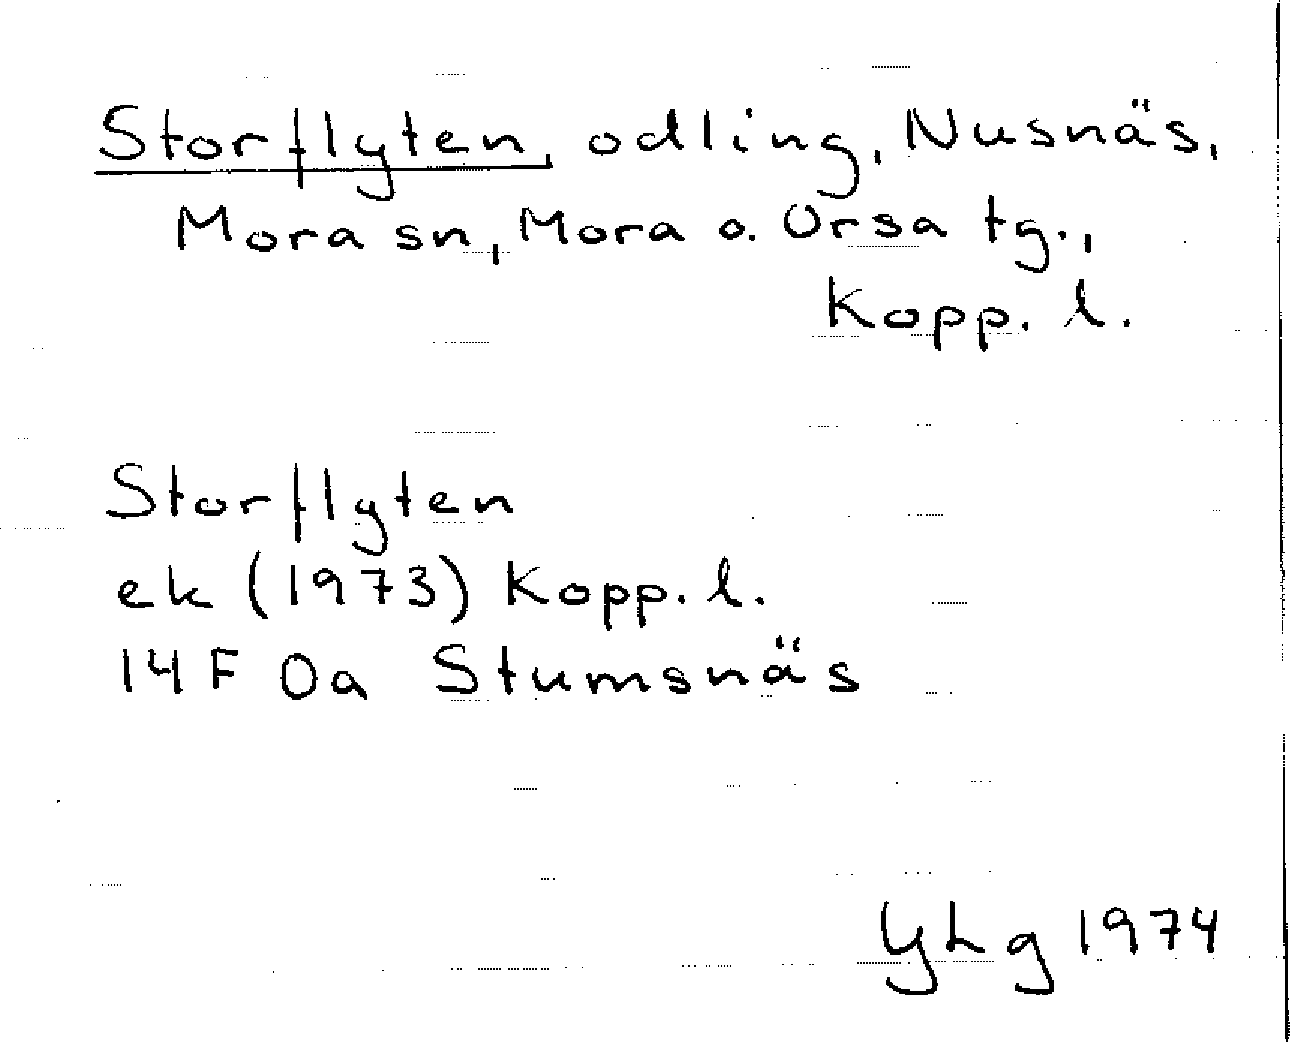 Storflyten, odling, Nusnäs,
Mora sn, Mora o. Orsa tg.,
Kopp. l.
Storflyten
ek (1973) Kopp. l.
14 F 0a Stumsnäs
YLg 1974